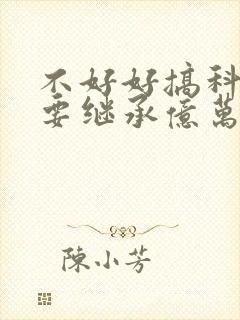 不好好搞科
要继承億萬
陳小芳